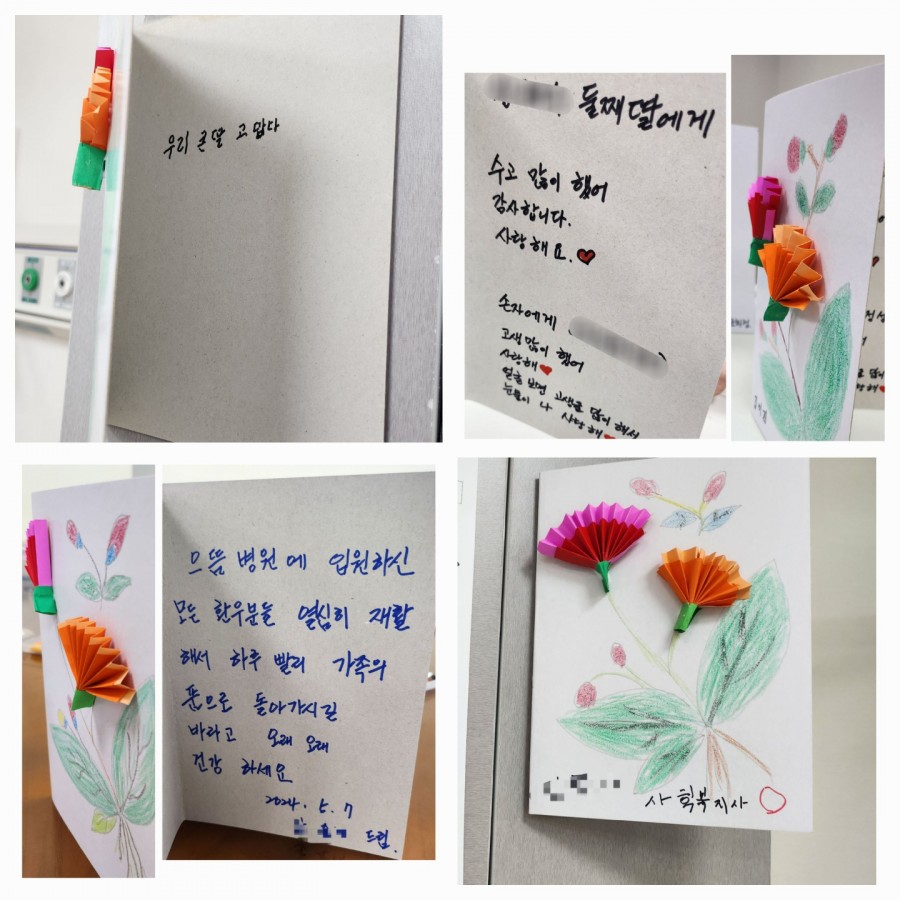 우리 큰딸 고맙다
둘째딸에게
수고 많이 했어
감사합니다.
사랑해요.
손자에게
고생많이 했어
사랑해
얼굴 보면 고생을 많이 해서
눈물이 나 사랑해
으뜸병원에 입원하신
모든 환우분들 열심히 재활
해서 하루 빨리 가족의
품으로 돌아가시길
바라고 오래 오래
건강 하세요
2024. 5. 7
드림.
사회복지사